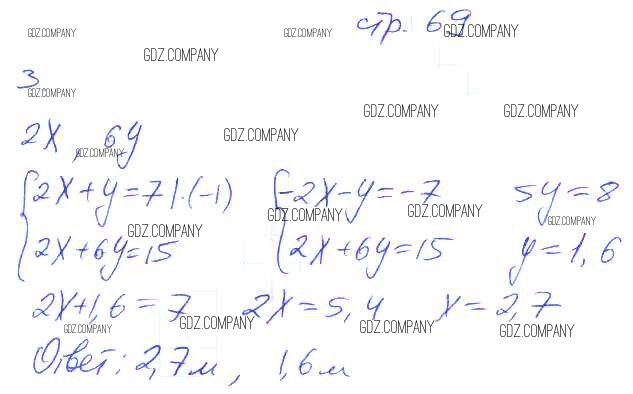 стр. 69
GDZ.COMPANY GDZ.COMPANY GDZ.COMPANY
GDZ.COMPANY
3
GDZ.COMPANY
GDZ.COMPANY GDZ.COMPANY
GDZ.COMPANY
2x, 6y
GDZ.COMPANY
{2x+y=7 |·(-1) {-2x-y=-7 5y=8
GDZ.COMPANY GDZ.COMPANY GDZ.COMPANY
GDZ.COMPANY
{2x+6y=15 {2x+6y=15 y=1,6
2x+1,6=7 2x=5,4 x=2,7
GDZ.COMPANY GDZ.COMPANY GDZ.COMPANY GDZ.COMPANY
Ответ: 2,7м, 1,6м